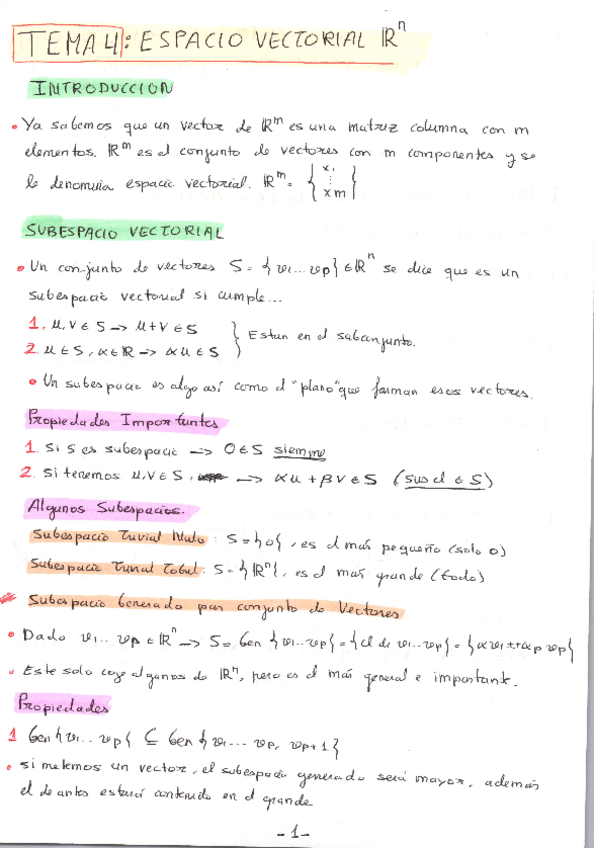 TEMA 4: ESPACIO VECTORIAL ℝⁿ
INTRODUCCION
• Ya sabemos que un vector de ℝᵐ es una matriz columna con m
elementos. ℝᵐ es el conjunto de vectores con m componentes y se
le denomina espacio vectorial. ℝᵐ = { x₁ ⋮ xm }
SUBESPACIO VECTORIAL
• Un conjunto de vectores S = {v1...vp} ∈ ℝⁿ se dice que es un
subespacio vectorial si cumple...
1. u, v ∈ S → u+v ∈ S
2. u ∈ S, α ∈ ℝ → αu ∈ S } Estan en el subconjunto.
• Un subespacio es algo así como el "plano" que forman esos vectores.
Propiedades Importantes
1. Si S es subespacio → 0 ∈ S siempre
2. Si tenemos u, v ∈ S, → αu + βv ∈ S (sus cl ∈ S)
Algunos Subespacios.
Subespacio Trivial Nulo: S = {0}, es el más pequeño (solo 0)
Subespacio Trivial Total: S = {ℝⁿ}, es el más grande (todo)
Subespacio Generado por conjunto de Vectores
• Dado v1... vp ∈ ℝⁿ → S = Gen {v1...vp} = {cl de v1...vp} = {αv1+..+αp vp}
• Este solo coge algunos de ℝⁿ, pero es el más general e importante.
Propiedades
1 Gen {v1... vp} ⊆ Gen {v1... vp, vp+1}
• si metemos un vector, el subespacio generado será mayor, además
el de antes estará contenido en el grande
-1-